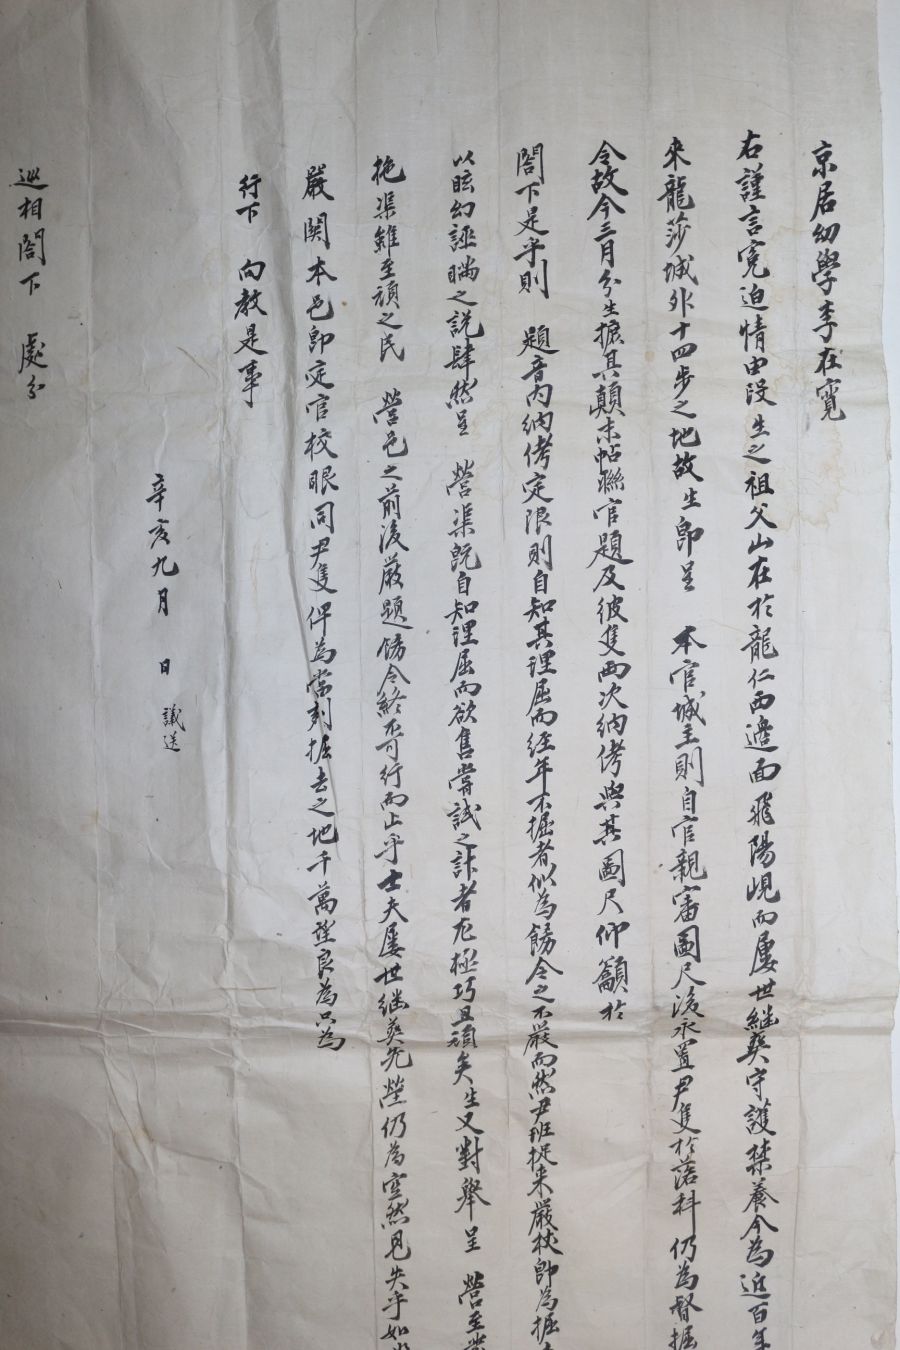 京居幼學李在寬
右謹言寃迫情由段生之祖父山在於龍仁西邊面飛陽峴而屢世繼葬守護禁養今爲近百年
來龍莎城外十四步之地故生卽呈 本官城主則自官親審圖尺後永置尹隻於落科仍爲督掘
令故今三月分生摭其顚末帖聯官題及彼隻兩次納侤與其圖尺仰籲於
閤下是乎則 題音內納侤定限則自知其理屈而經年不掘者似爲飭令之不嚴而然尹班捉來嚴杖卽爲掘
以眩幻誣瞞之說肆然呈 營渠旣自知理屈而欲售嘗試之計者尤極巧且頑矣生又對擧呈 營至
渠雖至頑之民 營邑之前後嚴題飭令終不可行而止乎士夫屢世繼葬先塋仍爲空然見失乎如
嚴關本邑卽定官校眼同尹隻伻爲當刻掘去之地千萬望良爲只爲
行下 向敎是事
辛亥九月 日 議送
巡相閤下 處分